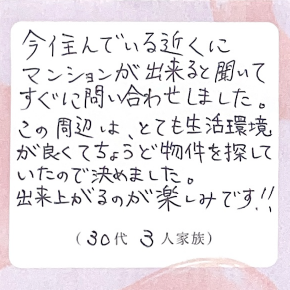 今住んでいる近くに
マンションが出来ると聞いて
すぐに問い合わせしました。
この周辺は、とても生活環境
が良くてちょうど物件を探して
いたので決めました。
出来上がるのが楽しみです!!
(30代 3人家族)